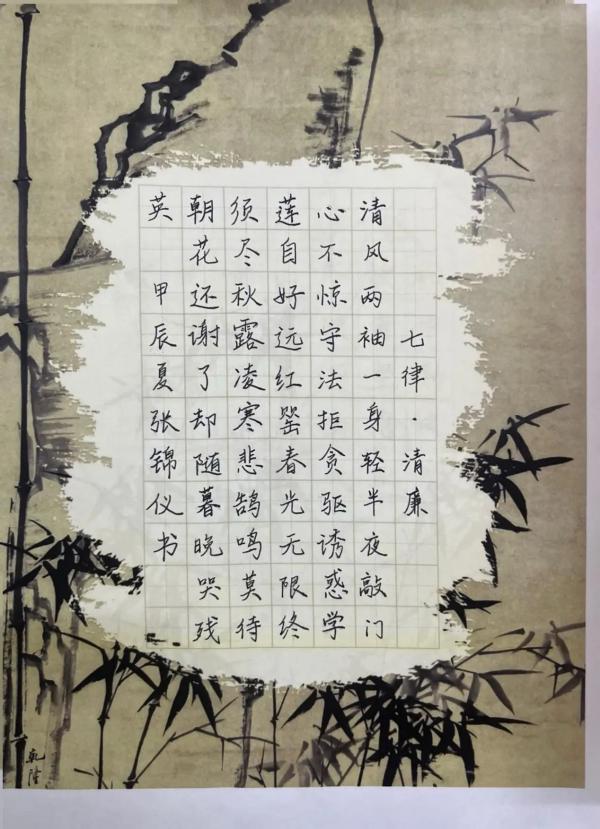 七律·清廉
清风两袖一身轻半夜敲门
心不惊守法拒贪驱诱惑学
莲自好远红罂春光无限终
须尽秋露凌寒悲鹄鸣莫待
朝花还谢了却随暮晚哭残
英 甲辰夏张锦仪书
乾隆